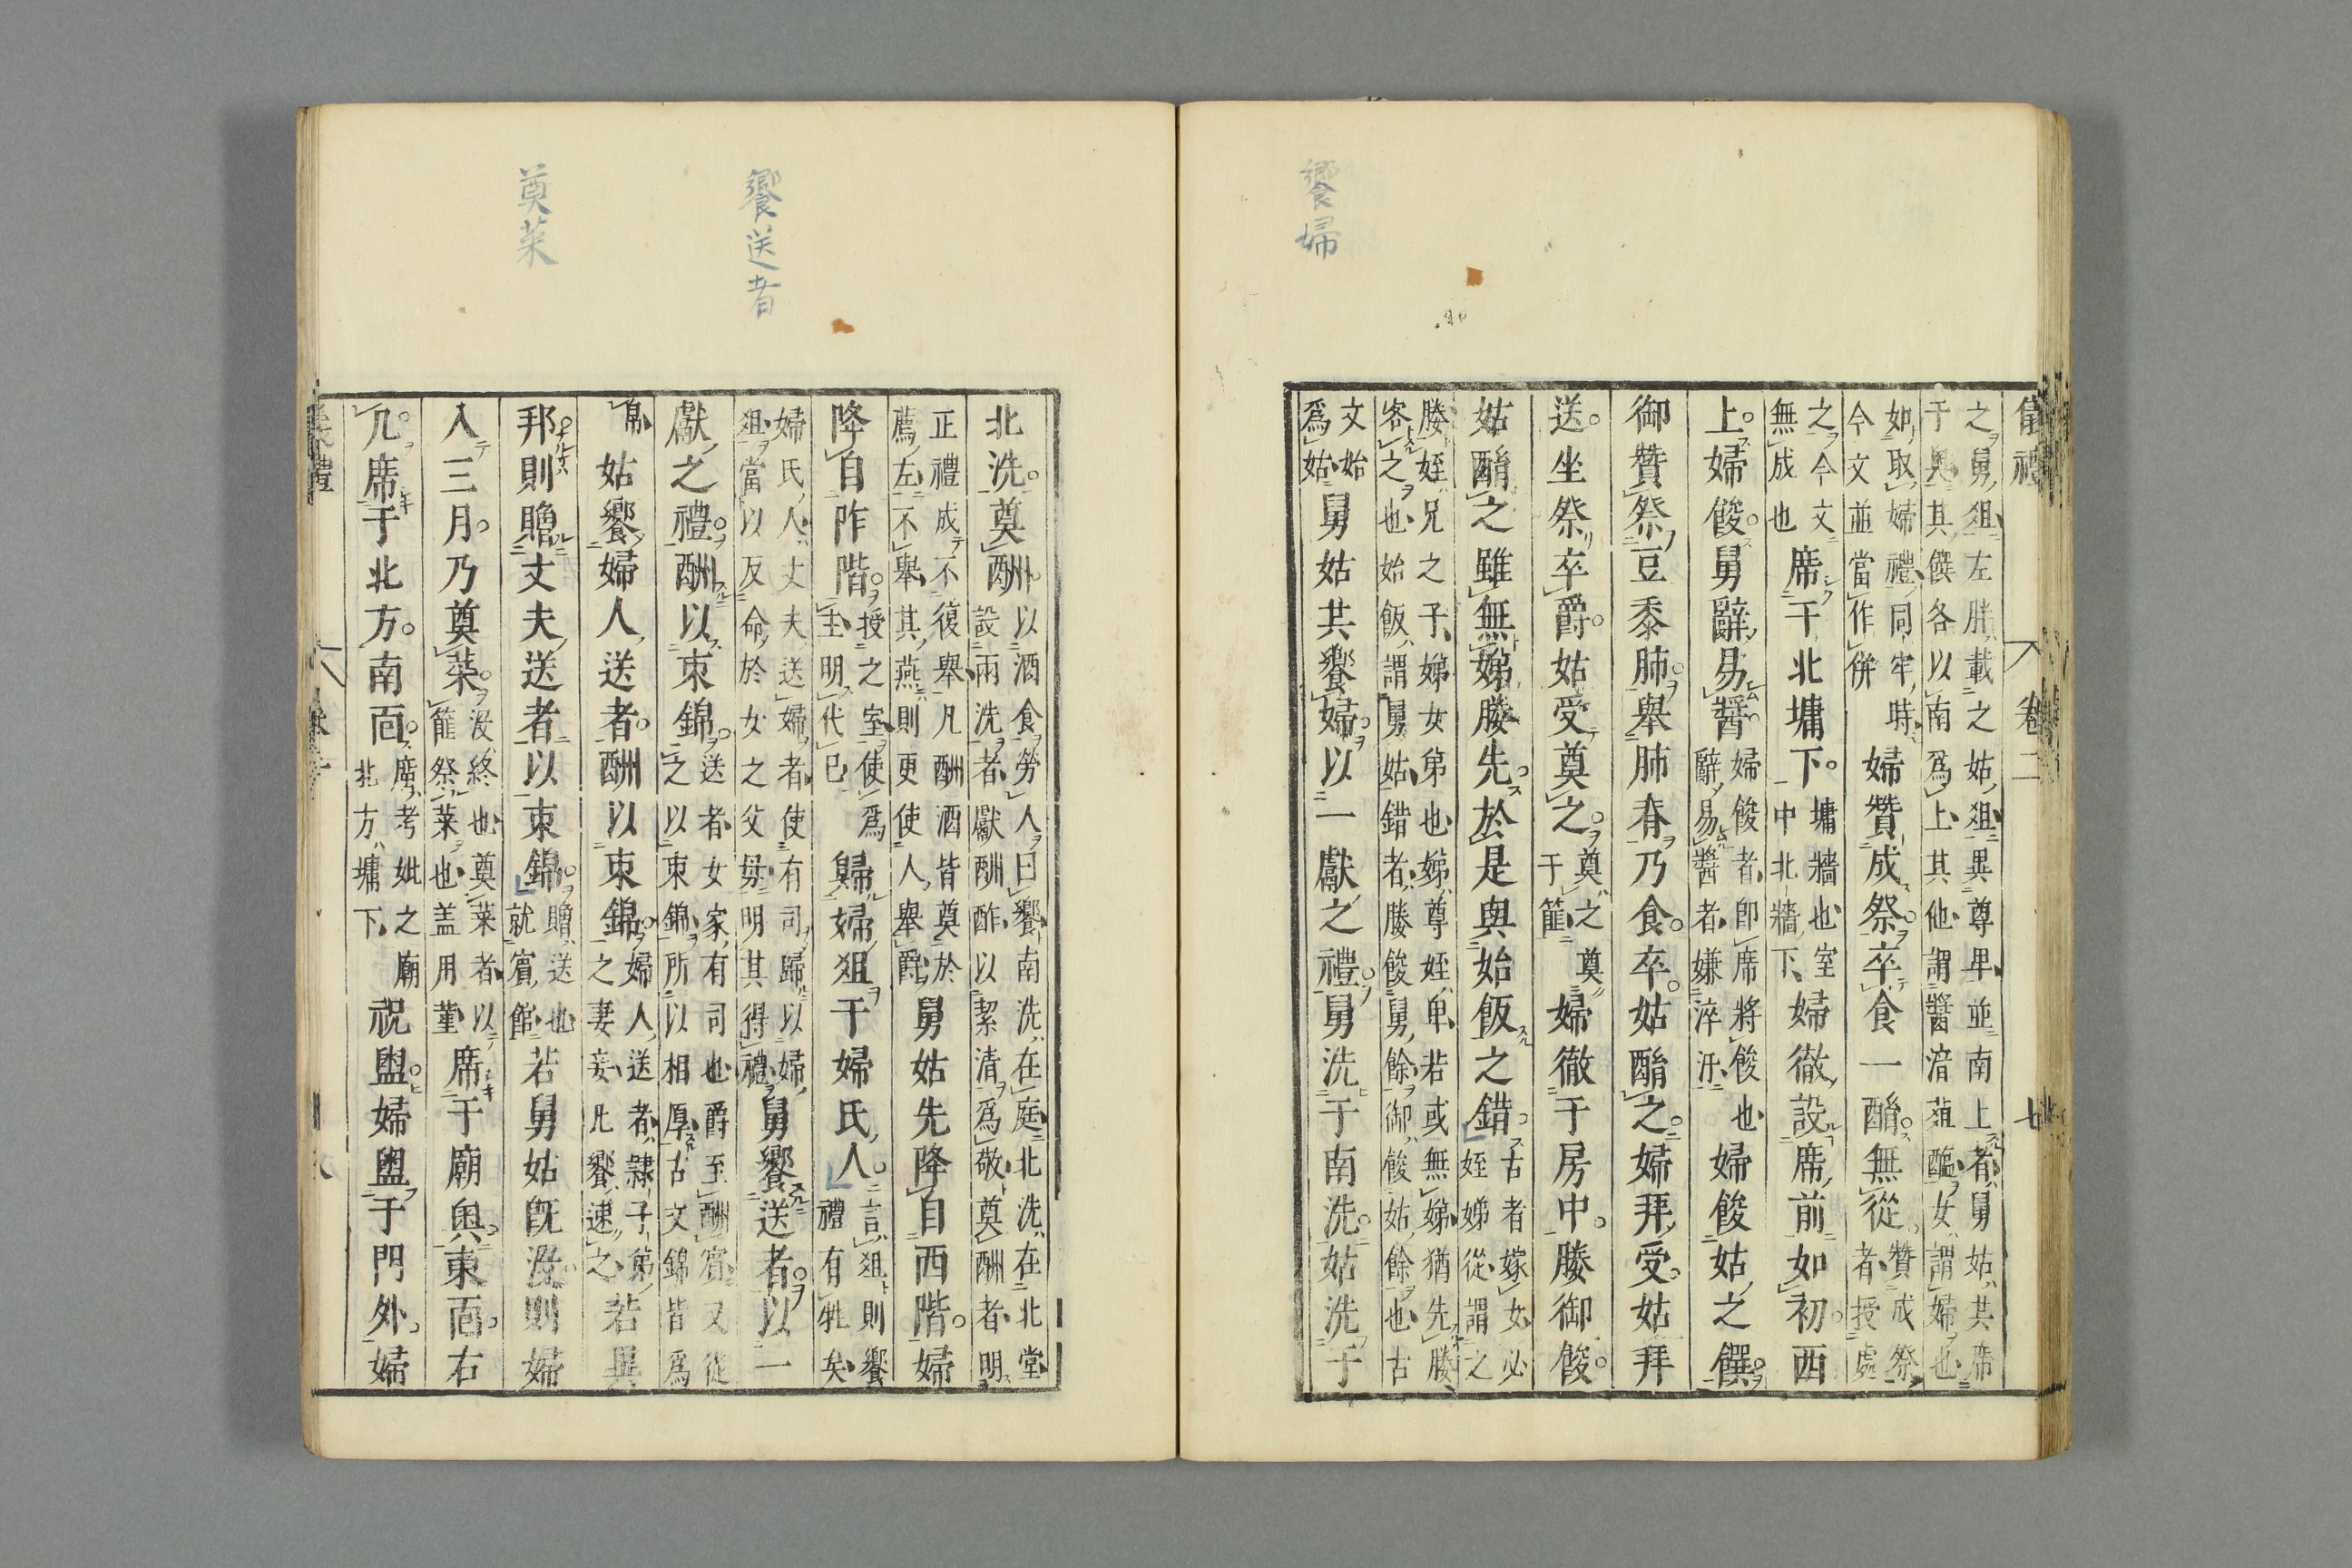 饗婦
儀禮 卷二 七
之舅俎左胖載之姑俎異尊卑並南上者舅姑共席
于奥其饌各以南爲上其他謂醬湆菹醢女謂婦也
如取婦禮同牢時
今文並當作併
婦贊成祭卒食一酳無從
贊成祭
者授處
之今文
無成也
席于北墉下
墉牆也室
中北牆下
婦徹設席前如初西
上婦餕舅辭易醬
婦餕者即席將餕也
辭易醬者嫌淬汙
婦餕姑之饌
御贊祭豆黍肺舉肺脊乃食卒姑酳之婦拜受姑拜
送坐祭卒爵姑受奠之
奠之奠
于篚
婦徹于房中媵御餕
姑酳之雖無娣媵先於是與始飯之錯
古者嫁女必
姪娣從謂之
媵姪兄之子娣女弟也娣尊姪卑若或無娣猶先媵
客之也始飯謂舅姑錯者媵餕舅餘御餕姑餘也古
文始
爲姑
舅姑共饗婦以一獻之禮舅洗于南洗姑洗于
饗送者
奠菜
北洗奠酬
以酒食勞人曰饗南洗在庭北洗在北堂
設兩洗者獻酬酢以絜清爲敬奠酬者明
正禮成不復舉凡酬酒皆奠於
薦左不舉其燕則更使人舉爵
舅姑先降自西階婦
降自阼階
授之室使爲
主明代已
歸婦俎于婦氏人
言俎則饗
禮有牲矣
婦氏人丈夫送婦者使有司歸以婦
俎當以反命於女之父母明其得禮
舅饗送者以一
獻之禮酬以束錦
送者女家有司也爵至酬賓又從
之以束錦所以相厚古文錦皆爲
帛
姑饗婦人送者酬以束錦
婦人送者隸子弟
之妻妾凡饗速之
若異
邦則贈丈夫送者以束錦
贈送也
就賓館
若舅姑旣沒則婦
入三月乃奠菜
沒終也奠菜者以
篚祭菜也盖用菫
席于廟奥東面右
几席于北方南面
廣考妣之廟
北方墉下
祝盥婦盥于門外婦